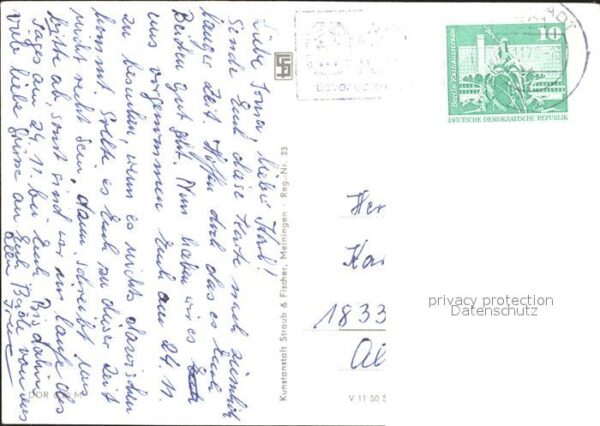 Liebe Irma, lieber Karl!
Sende Euch diese Karte nach ziemlich
langer Zeit. Hoffen doch das es Euch
Beiden gut geht. Nun haben wir es
uns vorgenommen Euch am 24. 11.
zu besuchen, wenn es nichts dazwischen
kommt. Sollte es Euch zu dieser Zeit
nicht recht sein, dann schreibt uns
bitte ab, sonst sind wir im laufe des
Tages am 24. 11. bei Euch. Bis dahin
viele liebe Grüsse an Euch Beide von uns
allen
DDR M
Kunstanstalt Straub & Fischer, Meiningen · Reg.-Nr. 23
V 11 50
10
Berlin, Rathausstraße
DEUTSCHE DEMOKRATISCHE REPUBLIK
Her
Kar
1833
privacy protection
Datenschutz